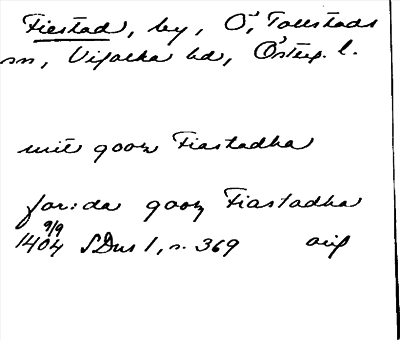 Fiestad, by, Ö. Tollstads
sn, Vifolka hd, Österg. l.
mit gooz Fiastadha
for:da gooz Fiastadha
9/9
1404 SDns 1, s. 369 avsk